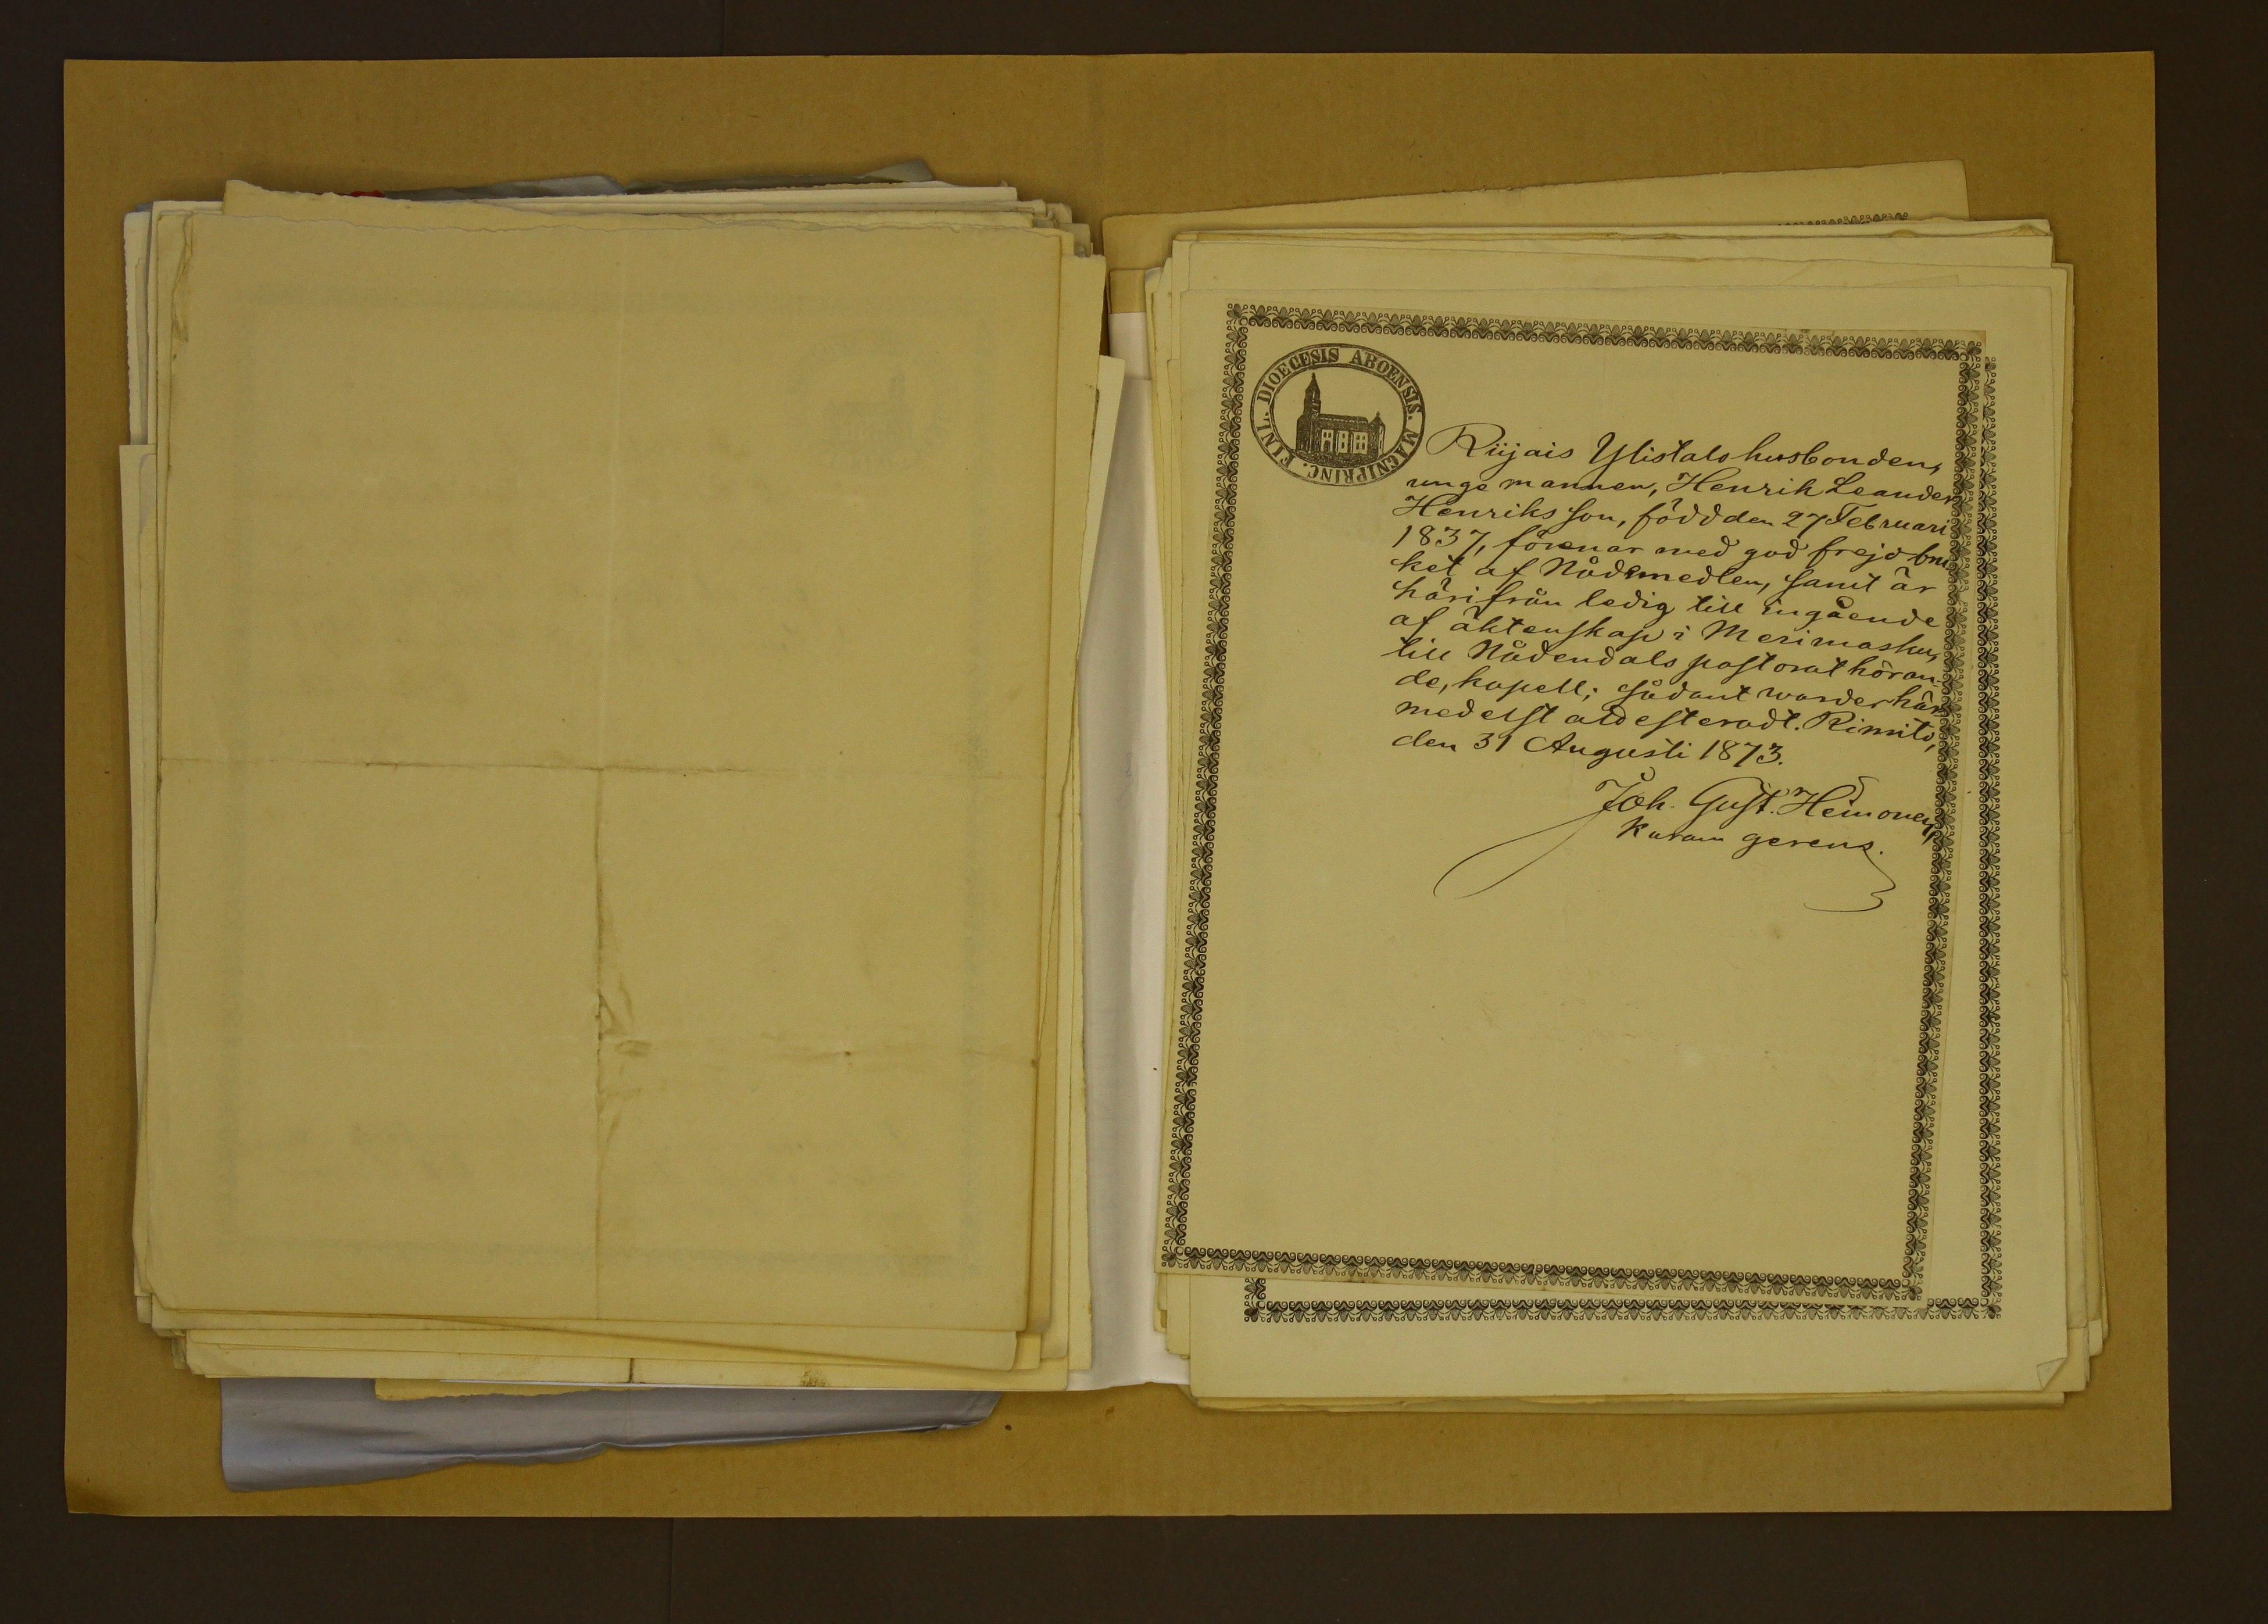 DIOECESIS ABOENSIS. MAGNIPRINC. FINL.
Riijais Ylistalo husbonden,
unge mannen, Henrik Leander
Henriksson, född den 27 Februari
1837, förenar med god frejd bru-
ket af Nådemedlen, samt är
härifrån ledig till ingående
af äktenskap i Merimasku,
till Nådendals pastorat höran-
de, kapell; sådant warder här-
medelst attesteradt. Rimito,
den 31 Augusti 1873.
Joh. Gust. Heinonen,
Kuram gerens.